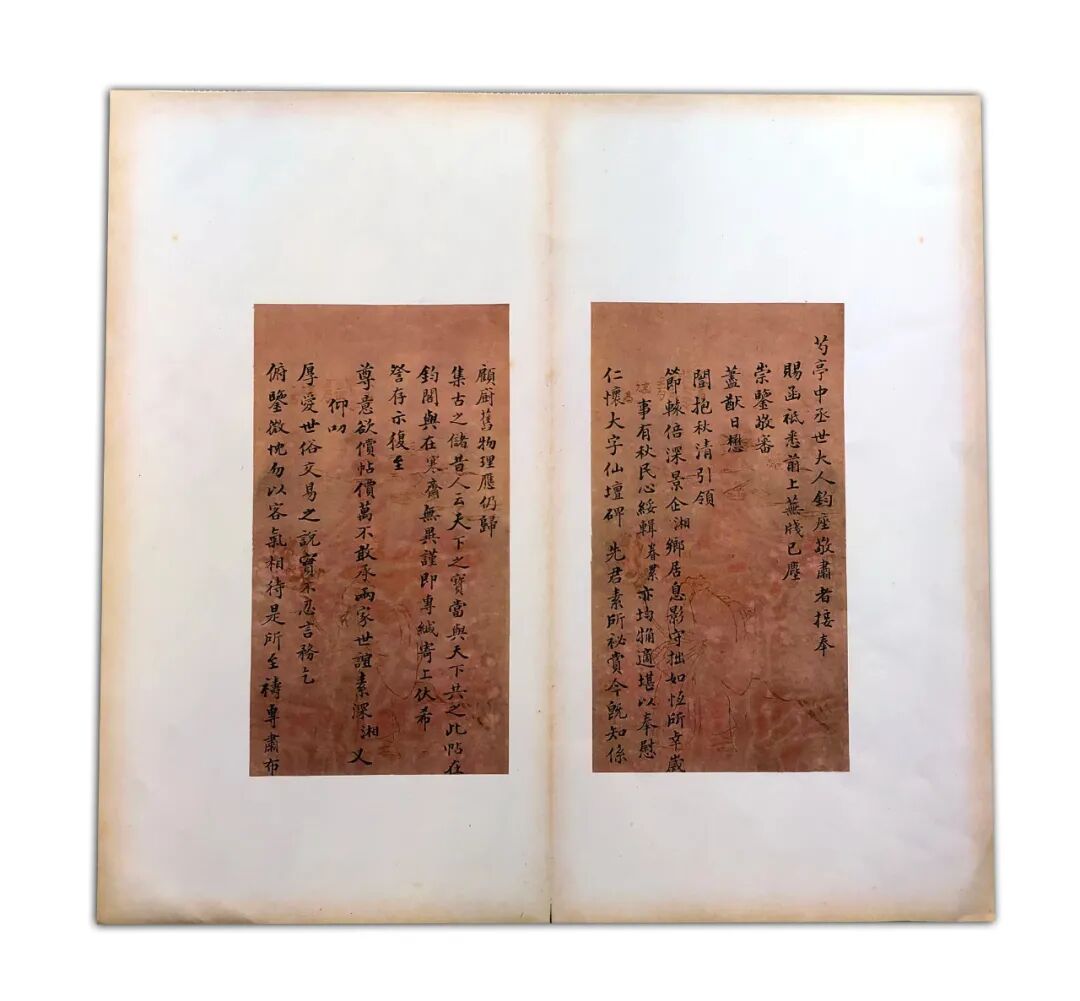 芍亭中丞世大人鈞座敬肅者接奉
賜函祗悉前上蕪牋已塵
崇鑒敬審
藎猷日懋
閤抱秋清引領
節轅倍深景企湘鄉居息影守拙如恆所幸歲
事有秋民心綏輯眷累亦均犕適堪以奉慰
仁懷大字仙壇碑 先君素所祕賞今旣知係
顧廚舊物理應仍歸
集古之儲昔人云天下之寶當與天下共之此帖在
鈞閣與在寒齋無異謹即專緘寄上伏希
詧存示復至
尊意欲償帖價萬不敢承兩家世誼素深湘又
仰叨
厚愛世俗交易之說實不忍言務乞
俯鑒微忱勿以客氣相待是所至禱專肅布